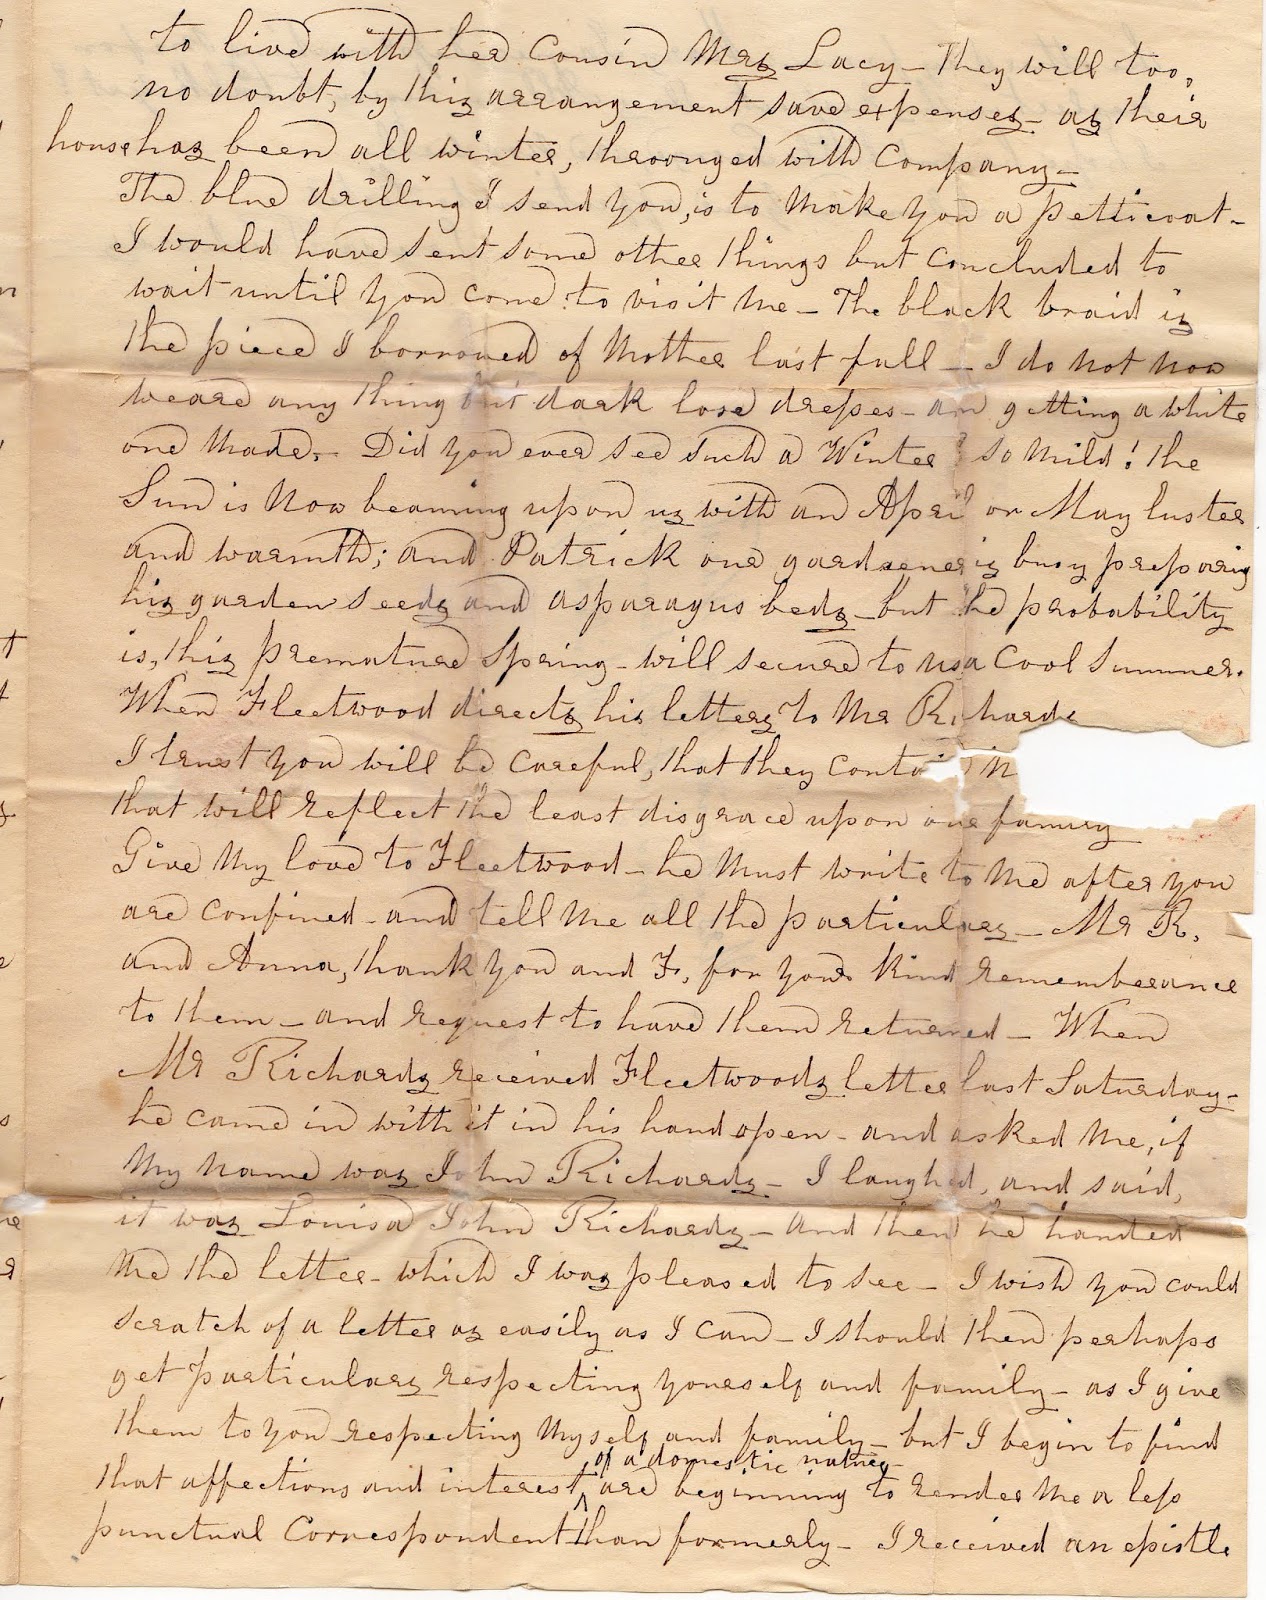 to live with her Cousin Mrs Lacy – They will too,
no doubt, by this arrangement save expenses – as their
house has been all winter, thronged with Company –
The blue drilling I send you, is to make you a petticoat –
I would have sent some other things but concluded to
wait until you come to visit me – The black braid is
the piece I borrowed of Mother last fall – I do not now
weare any thing but dark lose dresses – am getting a white
one made. – Did you ever see such a Winter so mild! the
Sun is now beaming upon us with an April or May luster
and warmth; and Patrick our gardsener is busy preparing
his garden seeds and asparagus beds – but the probability
is, this premature Spring – will secure to us a Cool Summer.
When Fleetwood directs his letters to Mr Richards
I trust you will be careful, that they contain
that will reflect the least disgrace upon our family
Give my love to Fleetwood – he must write to me after you
are confined – and tell me all the particulars – Mr R.
and Anna, thank you and F, for your kind rememberance
to them – and request to have them returned – When
Mr Richards received Fleetwoods letter last Saturday –
he came in with it in his hand open – and asked me, if
my name was John Richards – I laughed, and said,
it was Louisa John Richards – and then he handed
me the letter – which I was pleased to see – I wish you could
scratch of a letter as easily as I can – I should then perhaps
get particulars respecting yourself and family – as I give
them to you respecting myself and family – but I begin to find
of a domestic nature –
that affections and interest, ^ are beginning to render me a less
punctual Correspondent than formerly – I received an epistle